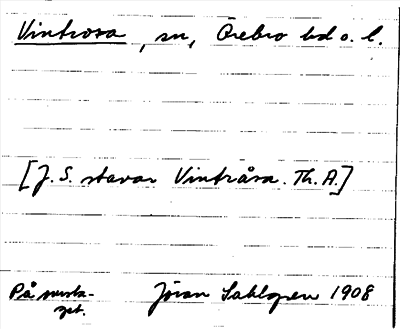 Vintrosa, sn, Örebro hd o. l.
[J. S. stavar Vintråsa. Th. A.]
På
Jöran Sahlgren 1908